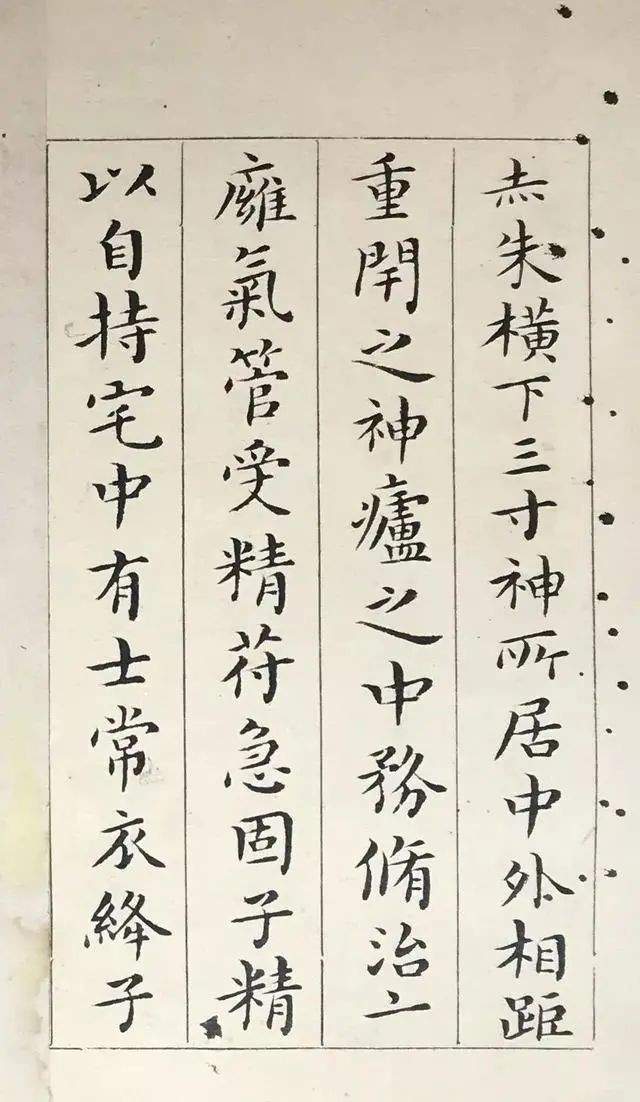 赤朱橫下三寸神所居中外相距
重閇之神廬之中務脩治二
廱氣管受精苻急固子精
以自持宅中有士常衣絳子